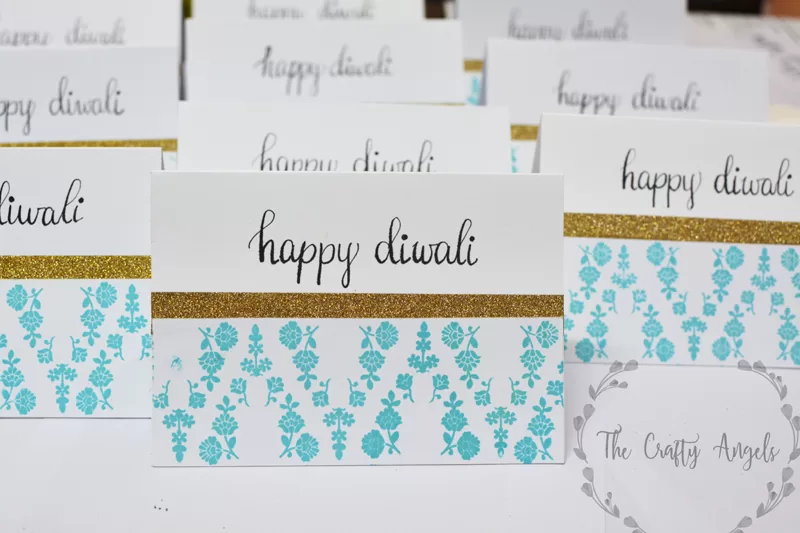 happy diwali
happy diwali
happy diwali
happy diwali
happy diwali
happy diwali
happy diwali
diwali
happy diwali
happy diwali
The Crafty Angels